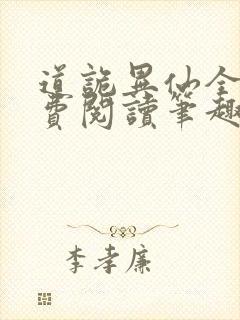 道詭異仙全
費閱讀筆趣
李孝廉